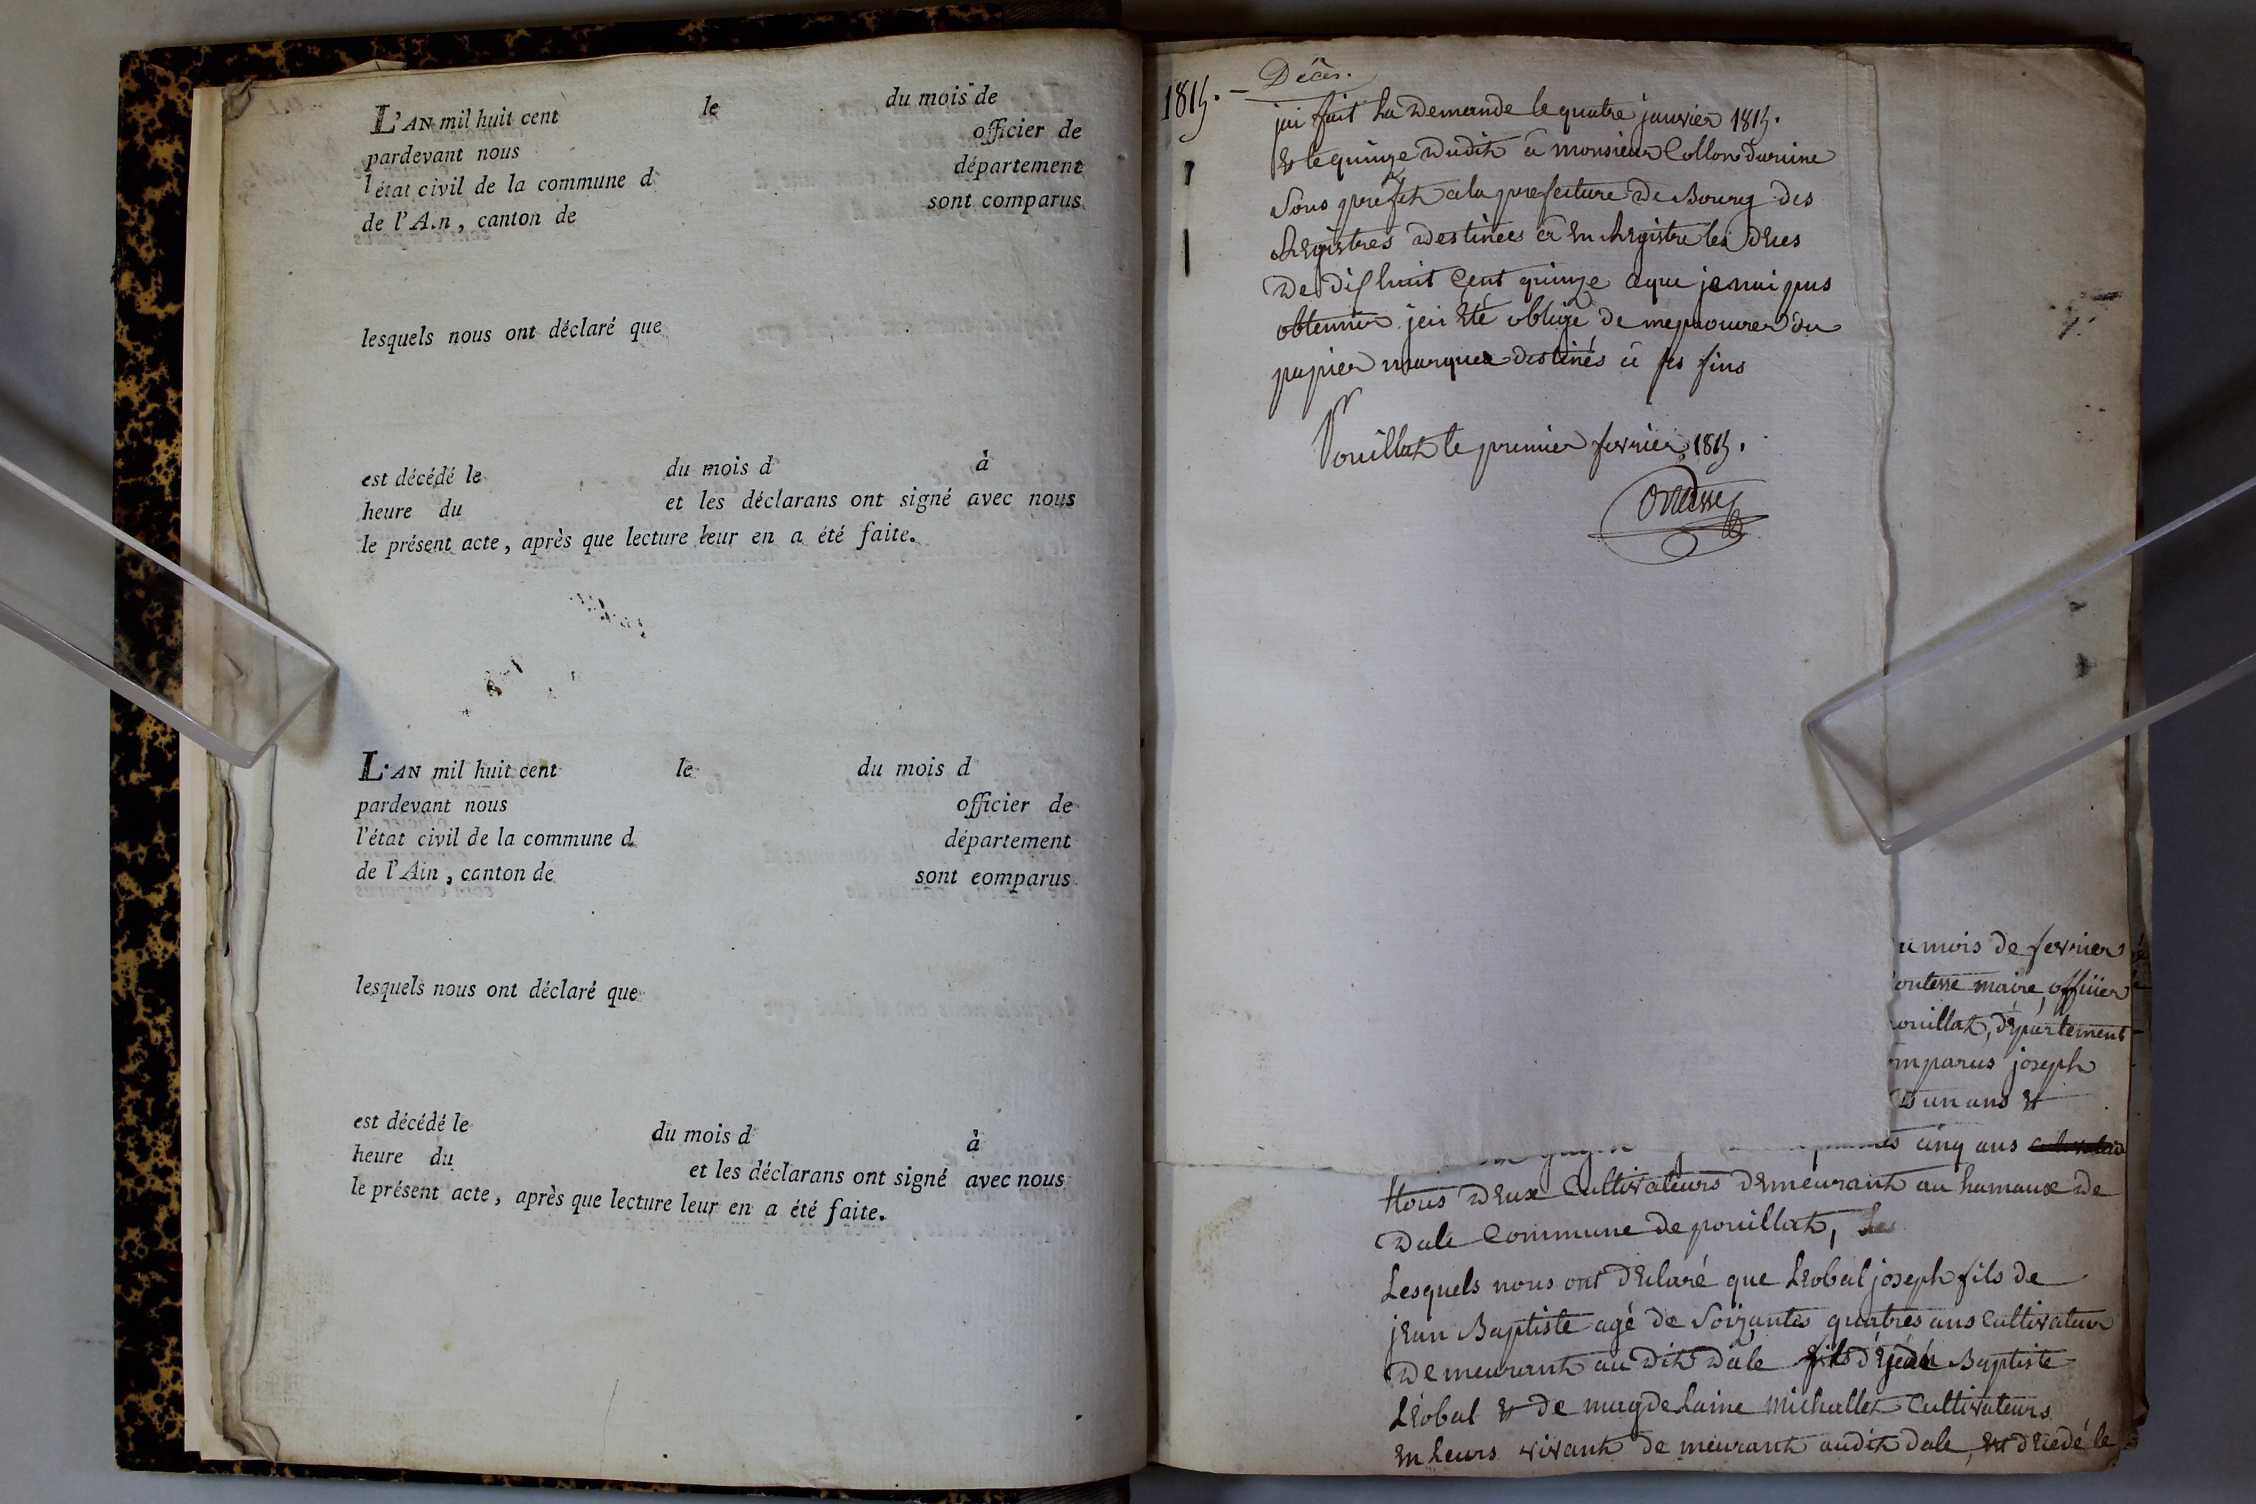 L'AN mil huit cent le du mois de
pardevant nous officier de
l'état civil de la commune d département
de l'Ain, canton de sont comparus
lesquels nous ont déclaré que
est décédé le du mois d à
heure du et les déclarans ont signé avec nous
le présent acte, après que lecture leur en a été faite.
L'AN mil huit cent le du mois d
pardevant nous officier de
l'état civil de la commune d département
de l'Ain, canton de sont comparus
lesquels nous ont déclaré que
est décédé le du mois d à
heure du et les déclarans ont signé avec nous
le présent acte, après que lecture leur en a été faite.
1815. – Décès.
jai fait La Demande le quatre janvier 1815.
& le quinze dudit à monsieur
Sous prefet a la prefecture de Bourg des
Registres destinées à En Registre les deces
De dix huit Cent quinze ce que je nai pus
obtennir jai Eté obligé de me procurer du
papier marquée destinés à ses fins
Pouillat le premier fevrier 1815.
u mois de fevrier
outesse maire, officier
ouillat, département
omparus joseph
un ans &
es cinq ans
tous deux Cultivateurs Demeurant au hamaux de
Dale Commune de pouillat,
Lesquels nous ont déclaré que Léobal joseph fils de
jean Baptiste agé de Soixantes quatres ans Cultivateur
Demeurant au dit Dale fils de jean Baptiste
Léobal & de magdelaine Michallet Cultivateurs
En Leurs vivant demeurant audit dale, est décédé le